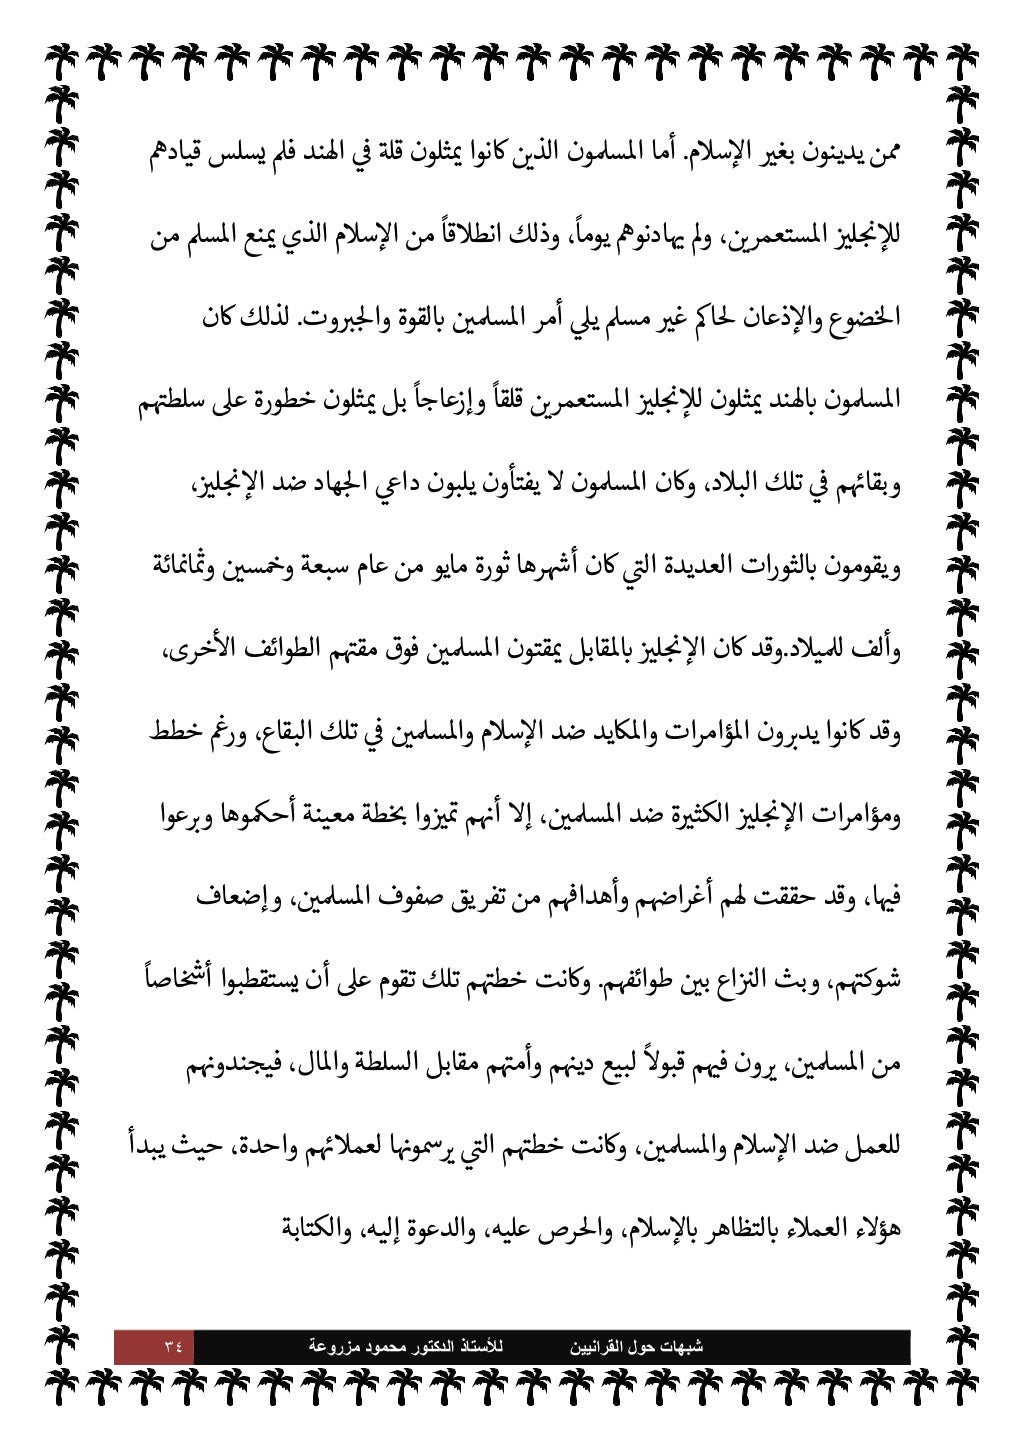 ممن يدينون بغير الإسلام. أما المسلمون الذين كانوا يمثلون قلة في الهند فلم يسلس قيادهم
للإنجليز المستعمرين، ولم يهادنوهم يوماً، وذلك انطلاقاً من الإسلام الذي يمنع المسلم من
الخضوع والإذعان لحاكم غير مسلم يلي أمر المسلمين بالقوة والجبروت. لذلك كان
المسلمون بالهند يمثلون للإنجليز المستعمرين قلقاً وإزعاجاً بل يمثلون خطورة على سلطتهم
وبقائهم في تلك البلاد، وكان المسلمون لا يفتأون يلبون داعي الجهاد ضد الإنجليز،
ويقومون بالثورات العديدة التي كان أشهرها ثورة مايو من عام سبعة وخمسين وثمانمائة
وألف للميلاد.وقد كان الإنجليز بالمقابل يمقتون المسلمين فوق مقتهم الطوائف الأخرى،
وقد كانوا يدبرون المؤامرات والمكايد ضد الإسلام والمسلمين في تلك البقاع، ورغم خطط
ومؤامرات الإنجليز الكثيرة ضد المسلمين، إلا أنهم تميزوا بخطة معينة أحكموها وبرعوا
فيها، وقد حققت لهم أغراضهم وأهدافهم من تفريق صفوف المسلمين، وإضعاف
شوكتهم، وبث النزاع بين طوائفهم. وكانت خطتهم تلك تقوم على أن يستقطبوا أشخاصاً
من المسلمين، يرون فيهم قبولاً لبيع دينهم وأمتهم مقابل السلطة والمال، فيجندونهم
للعمل ضد الإسلام والمسلمين، وكانت خطتهم التي يرسمونها لعملائهم واحدة، حيث يبدأ
هؤلاء العملاء بالتظاهر بالإسلام، والحرص عليه، والدعوة إليه، والكتابة
شبهات حول القرانيين للأستاذ الدكتور محمود مزروعة ٣٤